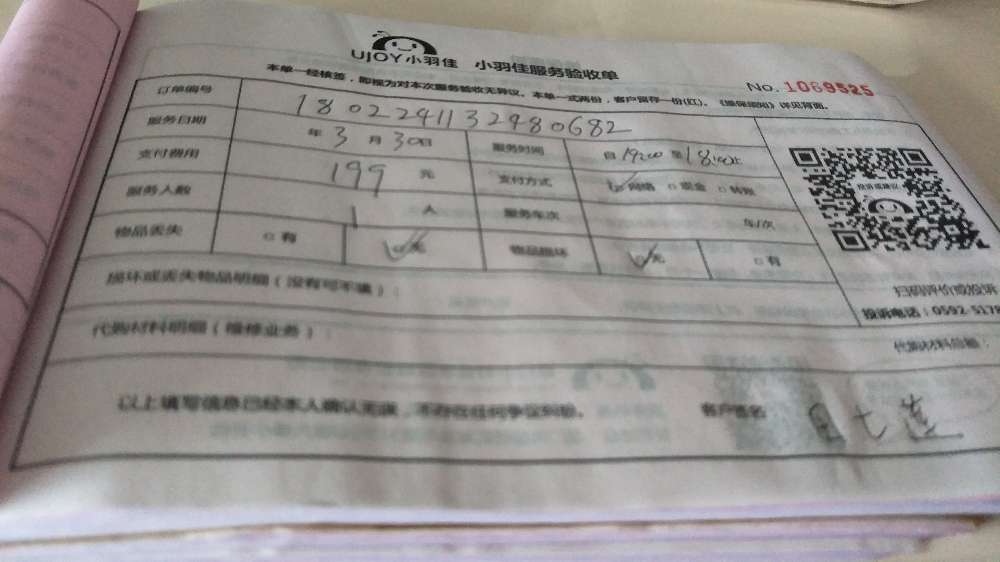 UJOY小羽佳 小羽佳服务验收单
No. 1069525
本单一经核签，即视为对本次服务验收无异议。本单一式两份，客户留存一份(红)。《维保须知》详见背面。
订单编号 1802241132980682
服务日期 年 3 月 30 日 服务时间 自 至 18:00 止
支付费用 199 元 支付方式 网络 现金 转账
服务人数 1 人 服务车次 车/次
物品丢失 有 无 物品损坏 无 有
投诉或建议
扫码评价或投诉
投诉电话：0592 5178
损坏或丢失物品明细（没有可不填）：
代购材料明细（维修业务）：
代购材料总额：
以上填写信息已经本人确认无误，不存在任何争议纠纷。 客户签名 七莲